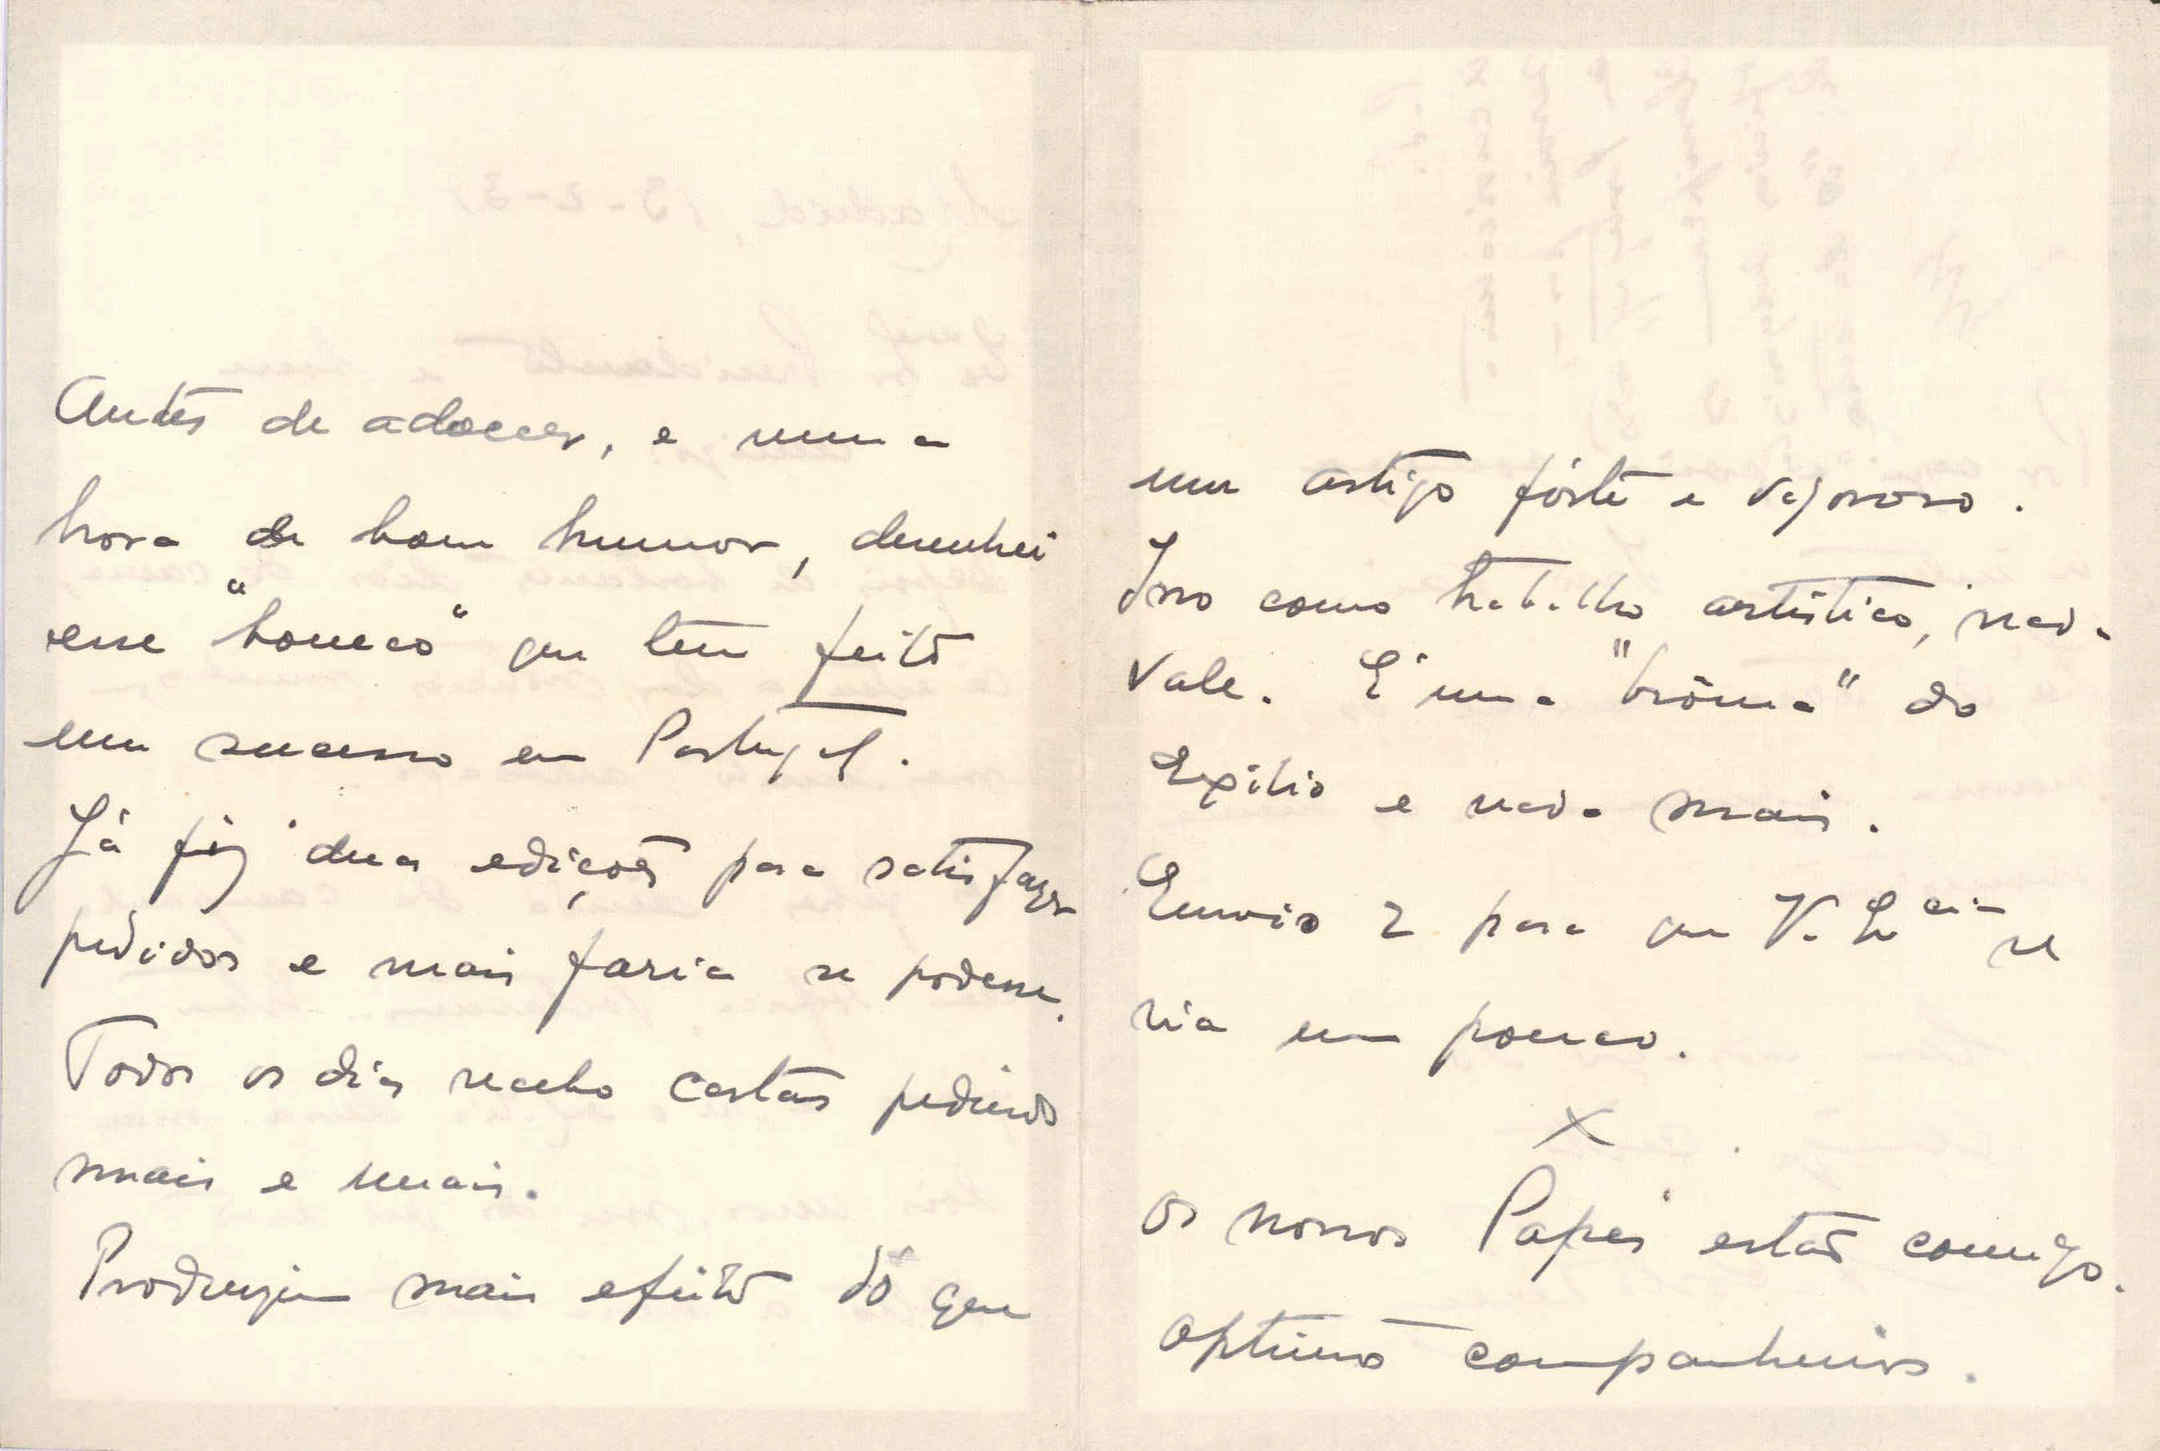 Antes de adoecer, e numa
hora de bom humor, desenhei
esse "boneco" que tem feito
um sucesso em Portugal.
Já fiz duas edições para satisfazer
pedidos e mais faria se podesse.
Todos os dias recebo cartas pedindo
mais e mais.
Produzem mais efeito do que
um artigo fórte e vigoroso.
Isso como trabalho artistico, nada
vale. É uma "brôma" do
Exilio e nada mais.
Envio 2 para que V. Ex.cia se
ria um pouco.
X
Os nossos Papeis estão comigo.
Optimos companheiros.